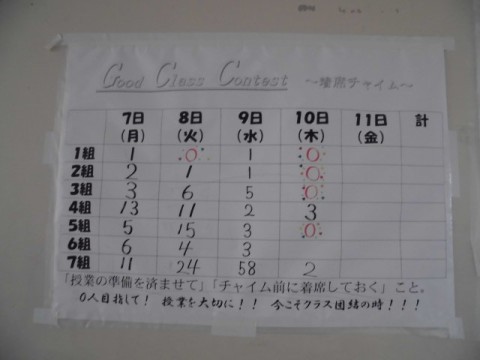 Good Class Contest ～着席チャイム～
7日 8日 9日 10日 11日 計
(月) (火) (水) (木) (金)
1組 1 0 1 0
2組 2 1 1 0
3組 3 6 5 0
4組 13 11 2 3
5組 5 15 3 0
6組 6 4 3
7組 11 24 58 2
「授業の準備を済ませて」「チャイム前に着席しておく」こと。
0人目指して! 授業を大切に!! 今こそクラス団結の時!!!